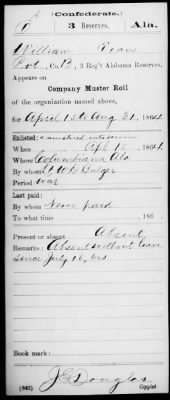 (Confederate.)
3 Reserves, Ala.
William Evans
Pvt, Co. B, 3 Reg't Alabama Reserves.
Appears on
Company Muster Roll
of the organization named above,
for April 15 to Aug. 31, 1864
Enlisted:
When Apl 15, 1864.
Where Columbiana Ala
By whom
Period War
Last paid:
By whom Never paid
To what time , 186 .
Present or absent Absent
Remarks: Absent without leave
since July 16, 64
Book mark:
(642) J E Douglas
Copyist